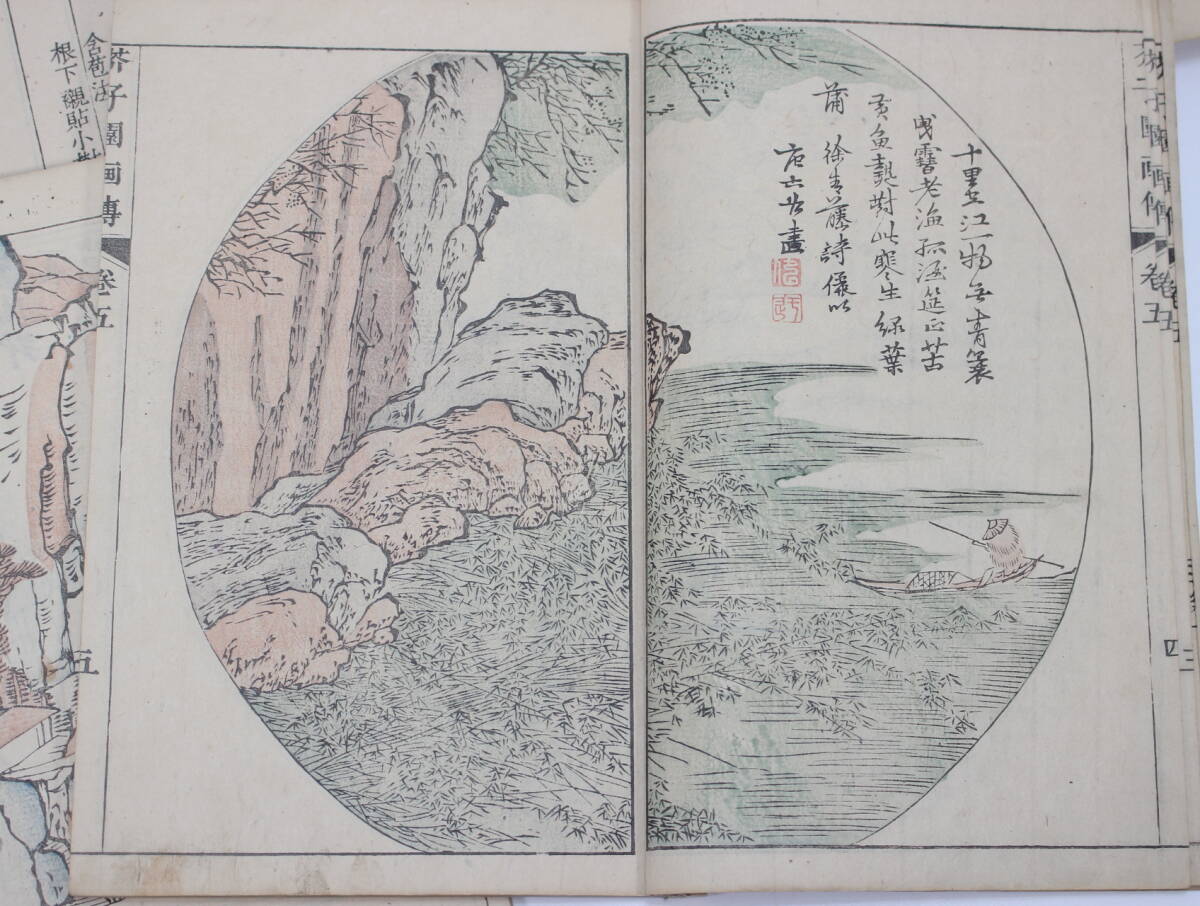 十里空江一物无青蓑
曳雪老漁孤酒筵正苦
黄魚熱對此寒生綠葉
蒲 徐青藤詩倣以
唐六如畫
芥子園画傳 卷五 五
芥子園画傳 卷五 四
含苞法
根下襯貼小